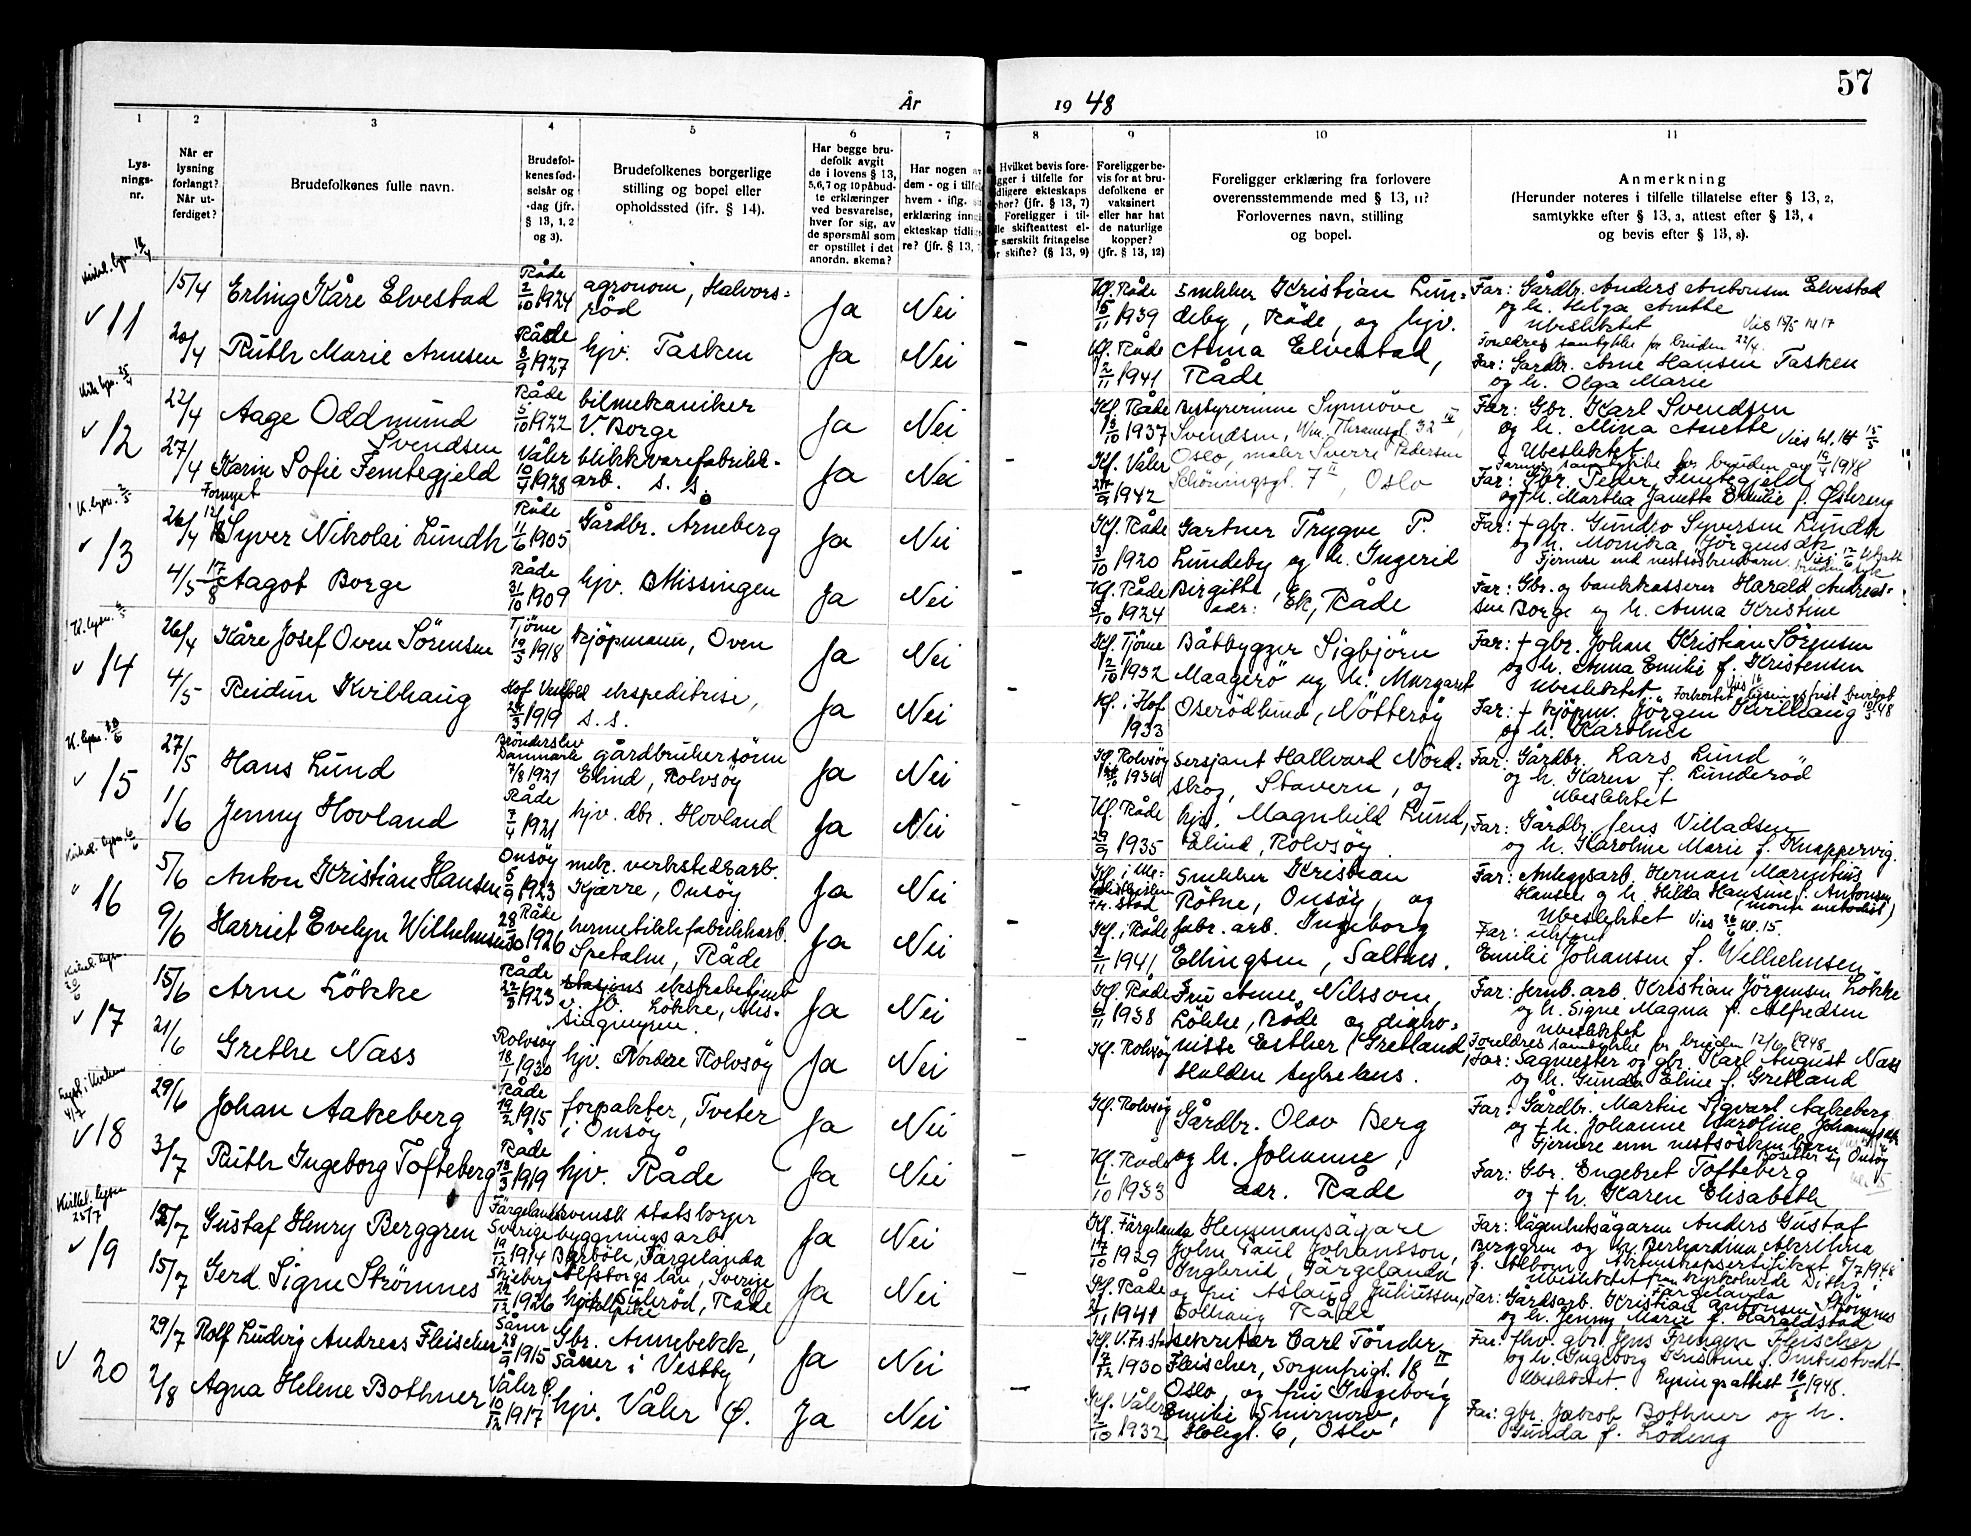 57
År 1948
1 2 3 4 5 6 7 8 9 10 11
Lys-
nings-
nr.
Når er
lysning
forlangt?
Når ut-
ferdiget?
Brudefolkenes fulle navn.
Brudefol-
kenes fød-
selsår og
-dag (jfr.
§ 13, 1, 2
og 3).
Brudefolkenes borgerlige
stilling og bopel eller
opholdssted (jfr. § 14).
Har begge bru-
defolk avgit
de i lovens § 13,
5, 6, 7 og 10 påbud-
te erklæringer
ved besvarelse,
hver for sig, av
de spørsmål som
er opstillet i det
anordn. skema?
Har nogen av
dem - og i tilf
hvem - iflg.
erklæring inn
ekteskap tidli
re? (jfr. § 13,
Hvilket bevis fore-
gger i tilfelle for
dligere ekteskaps
phør? (jfr. § 13, 7)
Foreligger i til-
lle skifteattest el-
r særskilt fritagelse
r skifte? (§ 13, 9)
Foreligger be-
vis for at bru-
defolkene er
vaksinert
eller har hat
de naturlige
kopper?
(jfr. § 13, 12)
Foreligger erklæring fra forlovere
overensstemmende med § 13, 11?
Forlovernes navn, stilling
og bopel.
Anmerkning
(Herunder noteres i tilfelle tillatelse efter § 13, 2,
samtykke efter § 13, 3, attest efter § 13, 4
og bevis efter § 13, 8).
Kirkel. lysn. 18/4
11
15/4 Erling Kåre Elvestad
Råde 2/10 1924
agronom, Halvors-
rød
Ja Nei
Kf. Råde 5/11 1939
snekker Kristian Lun-
deby, Råde, og hjv.
Far: Gårdbr. Anders Antonsen Elvestad
og h. Helga Anette
Ubeslektet
20/4 Ruth Marie Arnesen
Råde 8/9 1927
hjv. Tasken
Ja Nei -
Kf. Råde 2/11 1941
Anna Elvestad,
Råde
Foreldres samtykke for bruden 22/4.
Far: Gårdbr. Arne Hansen Tasken
og h. Olga Marie
12
22/4 Aage Oddmund
Svendsen
Råde 5/10 1922
bilmekaniker
V. Borge
Ja Nei
Kf. Råde 3/10 1937
Bestyrerinne Synnöve
Svendsen, Wm. Thranesgt. 32 IV,
Far: Gbr. Karl Svendsen
og h. Mina Anette
Ubeslektet
27/4 Karin Sofie Femtegjeld
Våler 10/4 1928
blikkvarefabrikk-
arb. s. s.
Ja Nei -
Kf. Våler 27/9 1942
Oslo, maler Sverre Pedersen
Schönningsgt. 7 II, Oslo
Farens samtykke for bruden av 19/4 1948
Far: Gbr. Peder Femtegjeld
og h. Martha Janette Emilie f. Østreng
K. lysn. 2/5
13
Fornyet
26/4 12/8 Syver Nikolai Lundh
Råde 11/6 1905
Gårdbr. Årneberg
Ja Nei
Kf. Råde 3/10 1920
Gartner Trygve P.
Lundeby og h. Ingerid
Far: + gbr. Gundro Syversen Lundh
og h. Monika Jörgensdtr.
Fjernere enn nestsöskenbarn
4/5 17/8 Aagot Borge
Råde 31/10 1909
hjv. Missingen
Ja Nei -
Kf. Råde 5/10 1924
Birgitte,
adr: Ek, Råde
Far: Gbr. og bankkasserer Harald Andreas-
sen Borge og h. Anna Kristine
14
26/4 Kåre Josef Oven Sörensen
Tjöme 19/3 1918
kjöpmann, Oven
Ja Nei
Kf. Tjöme 12/10 1932
Båtbygger Sigbjörn
Maagerö og h. Margaret
Far: + gbr. Johan Kristian Sörensen
og h. Anna Emilie f. Kristensen
Ubeslektet. Forkortet lysningsfrist bevilget 10/5 48
4/5 Reidun Kvilhaug
Hof Vestfold 24/3 1919
ekspeditrise,
s. s.
Ja Nei
Kf. i Hof 1933
Oserödlund, Nötteröy
Far: + kjöpm. Jörgen Kvilhaug
og h. Karoline
K. lysn. 30/6
15
27/5 Hans Lund
Brönderslev
Danmark 7/8 1921
gårdbrukersönn
Elind, Rolvsöy
Ja Nei
Kf. Rolvsöy 1936
Sersjant Hallvard Nord-
skog, Stavern, og
Far: Gårdbr. Lars Lund
og h. Karen f. Lunderöd
Ubeslektet
1/6 Jenny Hovland
Råde 7/4 1921
hjv. dbr. Hovland
Ja Nei -
Kf. Råde 29/9 1935
hjv. Magnhild Lund,
Elind, Rolvsöy
Far: Gårdbr. Jens Villadsen
og h. Karoline Marie f. Knappervig.
Kirkel. lysn. 6/6
16
5/6 Anton Kristian Hansen
Onsöy 5/9 1923
mek. verkstedsarb.
Kjærre, Onsöy
Ja Nei
Kf. i Me-
todistkirken
Fr.stad
Snekker Kristian
Rötne, Onsöy, og
Far: Anleggsarb. Herman Marinius
Hansen og h. Hilda Hansine f. Antonsen
(moren metodist)
Ubeslektet Vies 26/6 kl. 15.
9/6 Harriet Evelyn Wilhelmsen
Råde 28/10 1926
hermetikkfabrikkarb.
Spetalen, Råde
Ja Nei -
Kf. i Råde 2/11 1941
fabr. arb. Ingeborg
Ellingsen, Saltnes.
Far: ukjent
Emilie Johansen f. Wilhelmsen
Kirkel. lysn. 20/6
17
15/6 Arne Lökke
Råde 22/3 1923
stasjons ekstrabetjent
v. jb. Lökke, Mis-
singmyren.
Ja Nei
Kf. Råde 6/11 1938
Fru Anne Nilsson,
Lökke, Råde og diako-
Far: Jernb. arb. Kristian Jörgensen Lökke
og h. Signe Magna f. Alfredsen
Ubeslektet
21/6 Grethe Næss
Rolvsöy 18/1 1930
hjv. Nordre Rolvsöy
Ja Nei -
Kf. Rolvsöy
nisse Esther Gretland,
Halden sykehus.
Foreldres samtykke for bruden 12/6 1948
Far: Sagmester og gbr. Karl August Næss
og h. Gunda Eline f. Gretland
Lyst i Kirken
4/7
18
29/6 Johan Aakeberg
Råde 19/2 1915
forpakter, Tveter
i Onsöy
Ja Nei
Kf. Rolvsöy
Gårdbr. Olav Berg
Far: Gårdbr. Martin Sigvart Aakeberg
og + h. Johanne Karoline Johannesdtr.
Fjernere enn nestsösken barn
Bosetter sig Onsöy
3/7 Ruth Ingeborg Tofteberg
Råde 18/3 1919
hjv. Råde
Ja Nei -
Kf. Råde 1/10 1933
og h. Johanne,
adr. Råde
Far: Gbr. Engebret Tofteberg
og + h. Karen Elisabeth
Kirkel. lysn
25/7
19
15/7 Gustaf Henry Berggren
Färgelanda
Sverige 19/12 1914
svensk statsborger
byggningsarb.
Bärböle, Färgelanda
Älfsborgs län, Sverige
Ja Nei
Kf. Färgelanda 1929
Hemmansägare
John Paul Johansson,
Ingbrud, Färgelanda
Far: Lägenhetsägaren Anders Gustaf
Berggren og h. Bernhardina Albertina
f. Ahlbom. Äktenskapscertifikat 5/7 1948
Ubeslektet fra kyrkoherde
Färgelanda
15/7 Gerd Signe Strømnes
Skjeberg 22/12 1926
Sulerød, Råde
Ja Nei -
Kf. Råde 2/11 1941
og fru Aslaug Juliussen,
Solhaug Råde
Far: Gårdsarb. Kristian Antonsen Strömnes
og h. Jenny Marie f. Haraldstad
20
29/7 Rolf Ludvig Andreas Fleischer
Såner 28/9 1915
Gbr. Annebekk,
Såner i Vestby
Ja Nei
Kf. V. Fr.stad 7/12 1930
sekretær Carl Tönder
Fleischer, Sorgenfrigt. 18 II
Oslo, og fru Ingeborg
Far: fhv. gbr. Jens Frengen Fleischer
og h. Ingeborg Kristine f. Ombustvedt
Ubeslektet. Lysingsattest 16/8 1948.
2/8 Agna Helene Bothner
Våler Ø. 10/12 1917
hjv. Våler Ø.
Ja Nei -
Kf. Våler 2/10 1932
Emilie Smirnow,
Holegt. 6, Oslo
Far: gbr. Jakob Bothner og h.
Gunda f. Löding